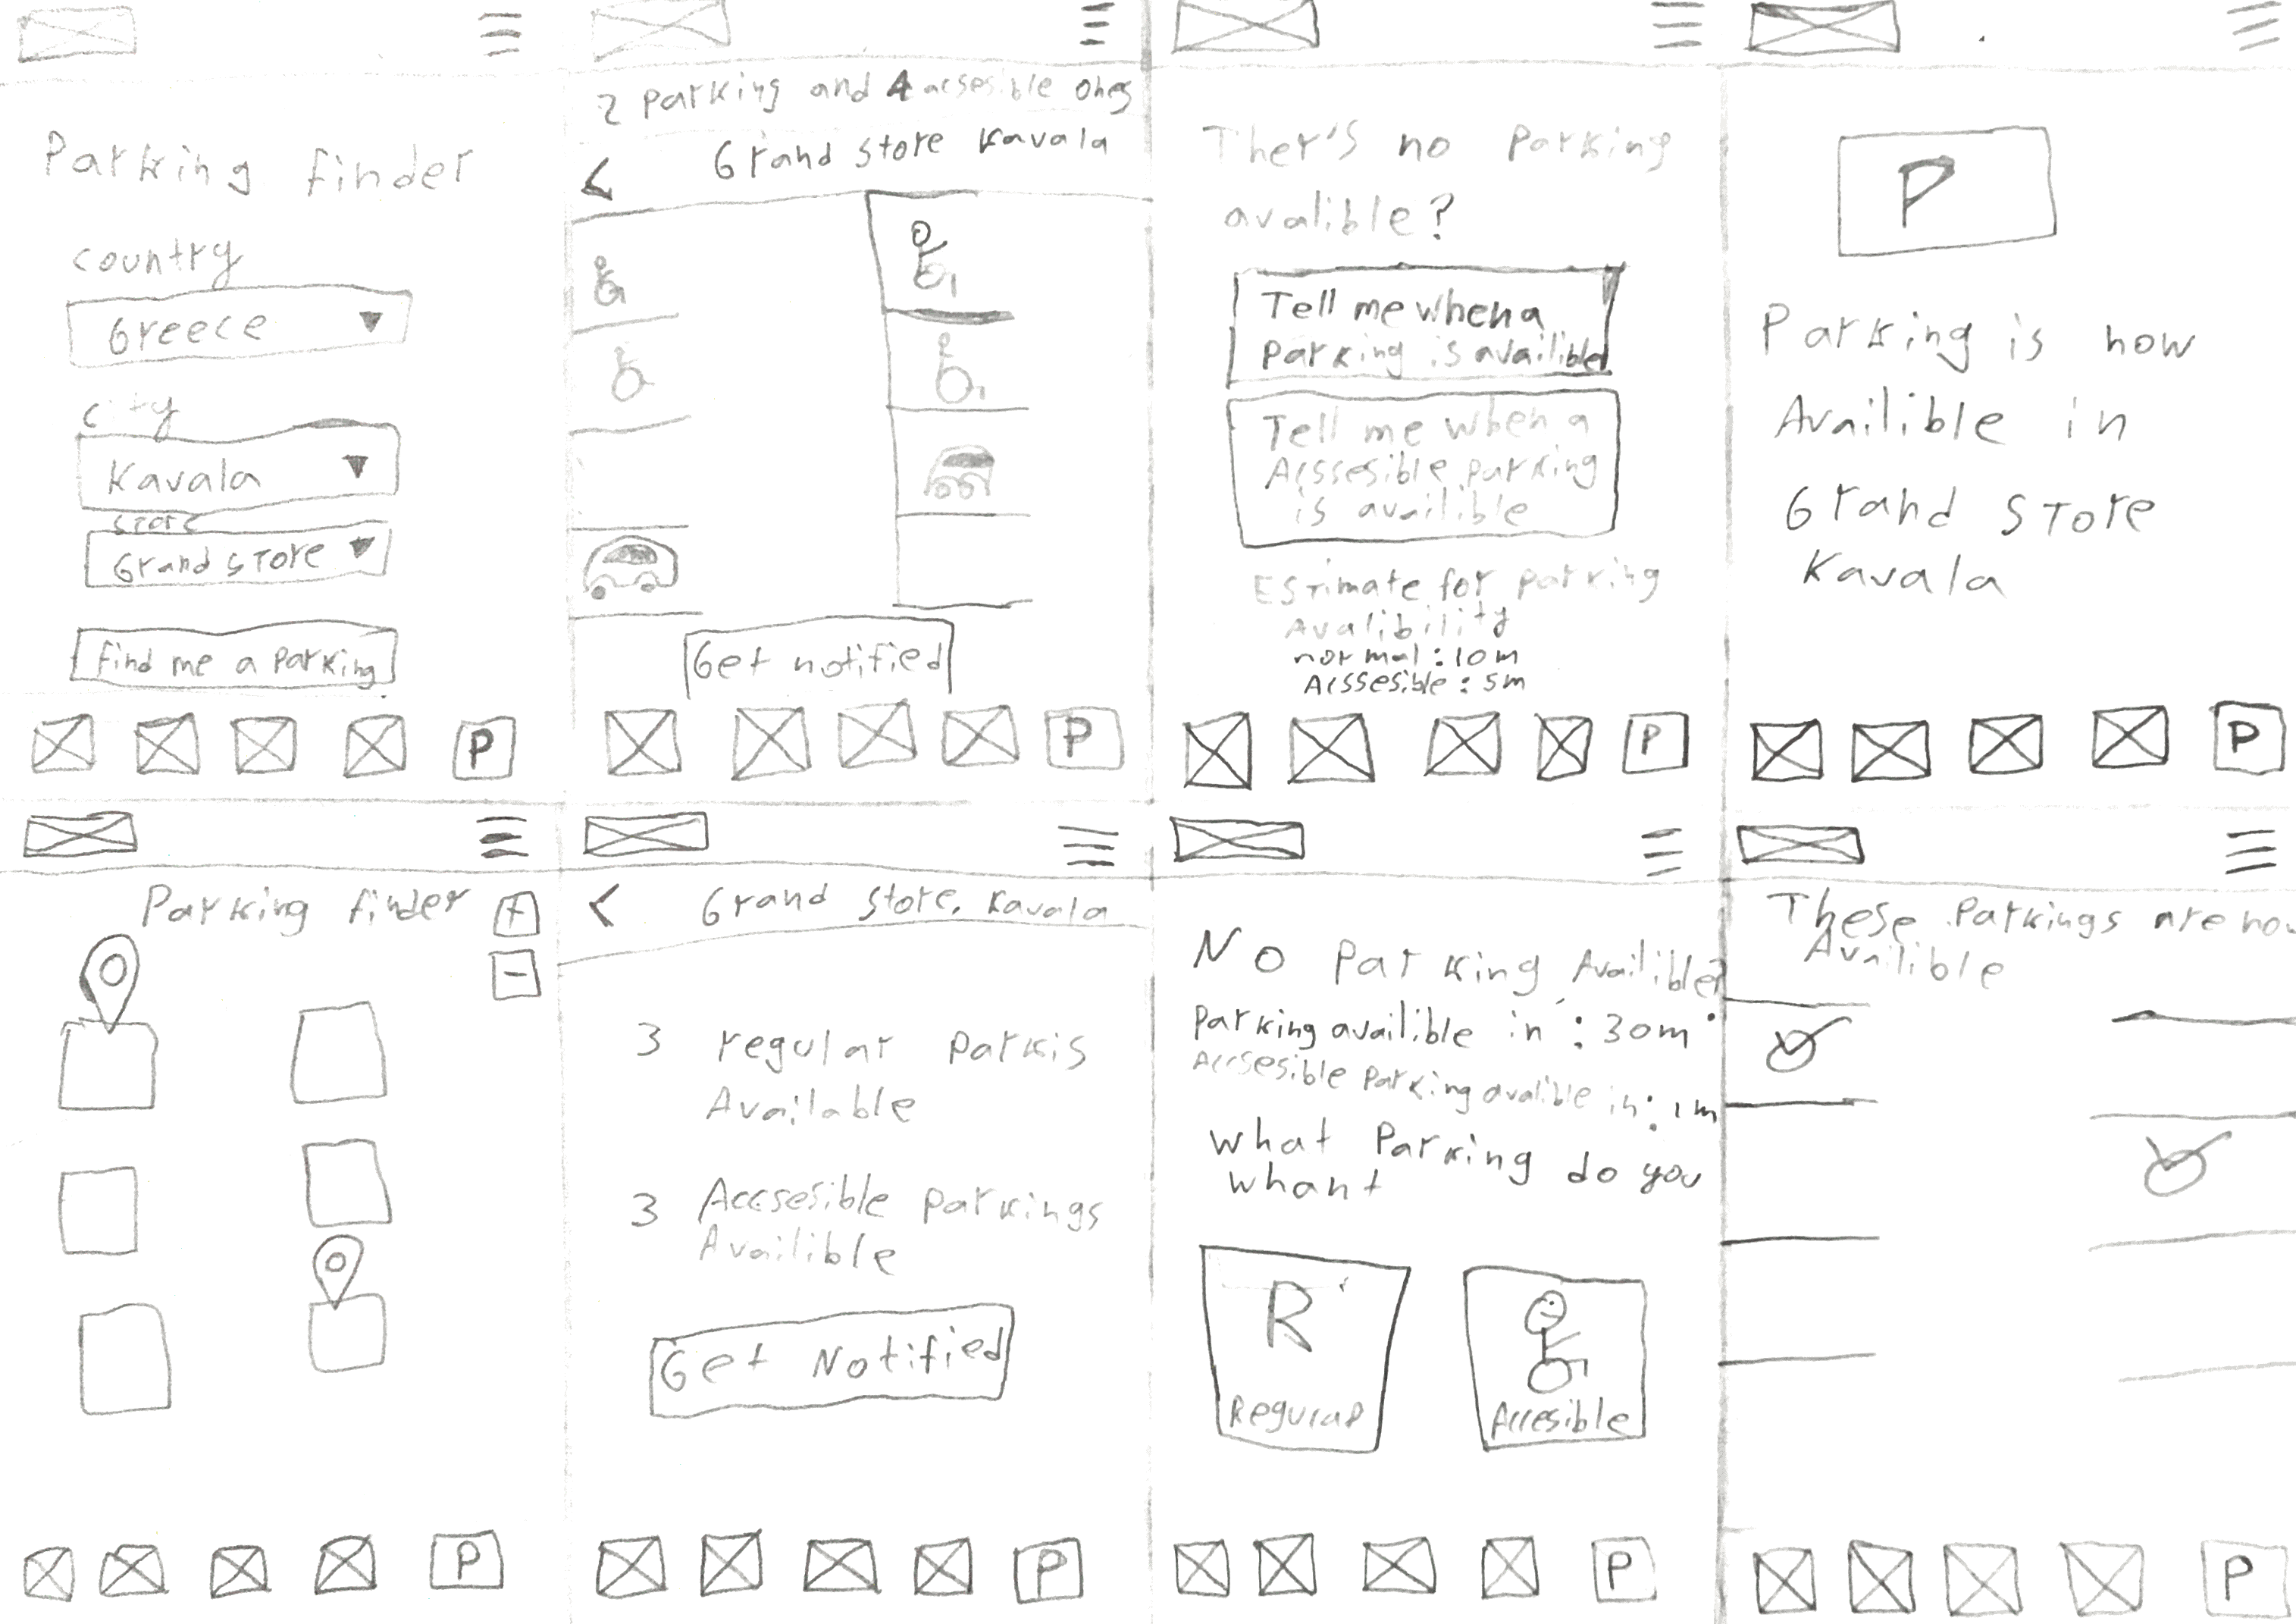 Parking finder
country
Greece
city
Kavala
store
Grand store
find me a parking
P
2 parking and 4 acsesible ones
< Grand store Kavala
Get notified
P
Ther's no parking
avalible?
Tell me when a
parking is availible
Tell me when a
Acssesible parking
is availible
Estimate for parking
Avalibility
normal: 10m
Acssesible: 5m
P
P
Parking is now
Availible in
Grand store
Kavala
P
Parking finder +
-
P
< Grand store, Kavala
3 regular parkis
Available
3 Accsesible parkings
Availible
Get Notified
P
No parking Availible?
Parking availible in: 30m
Accsesible parking avalible in: 1m
what parking do you
whant
R
Accesible
P
These parkings are now
Availible
P